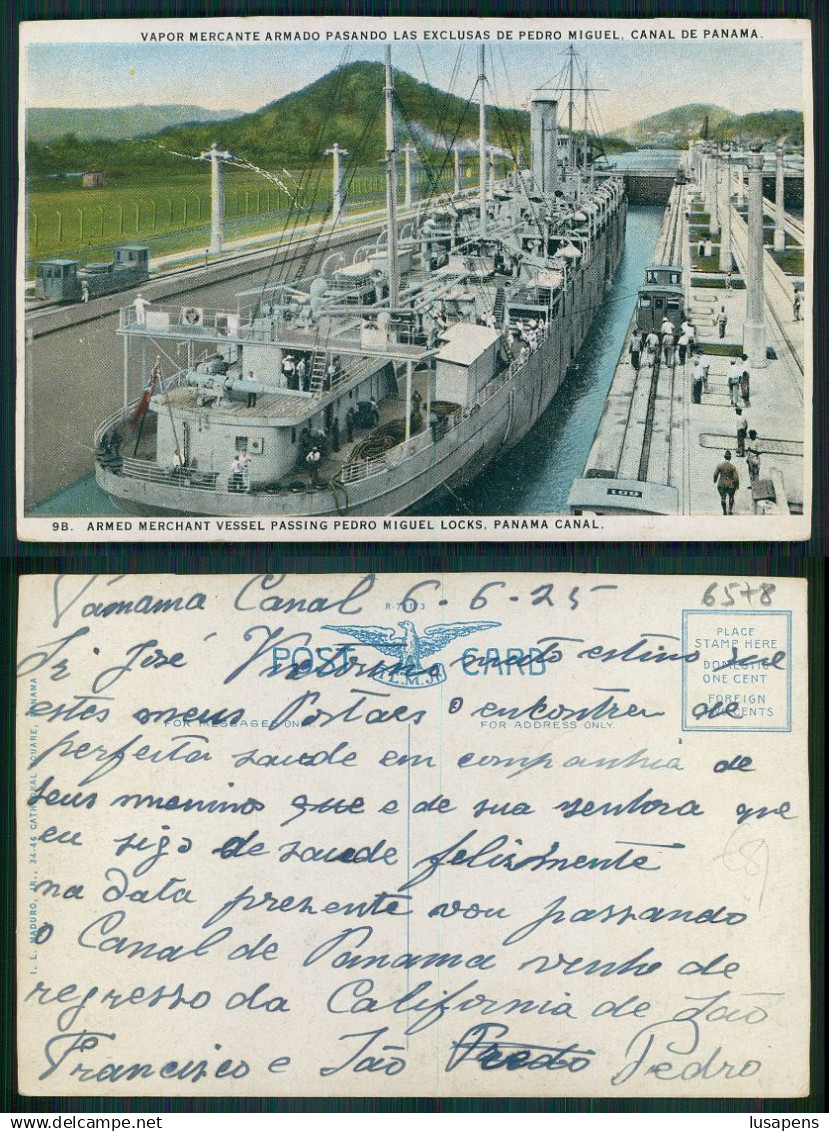 VAPOR MERCANTE ARMADO PASANDO LAS EXCLUSAS DE PEDRO MIGUEL, CANAL DE PANAMA.
109
9B. ARMED MERCHANT VESSEL PASSING PEDRO MIGUEL LOCKS, PANAMA CANAL.
Panama Canal 6-6-25
6578
POST CARD
I.L.M.JR.
PLACE
STAMP HERE
DOMESTIC
ONE CENT
FOREIGN
CENTS
FOR MESSAGES ONLY
FOR ADDRESS ONLY.
I. L. MADURO, JR., 34-46 CATHEDRAL SQUARE, PANAMA
Sr José muto estimo
estes meus Postaes o encontrem de
perfeita saude em companhia de
seus menino que e de sua senhora que
eu sigo de saude felismente
na data presente vou passando
o Canal de Panama venho de
regresso da California de São
Francisco e São Predo Pedro
lusapens
Delcampe.net